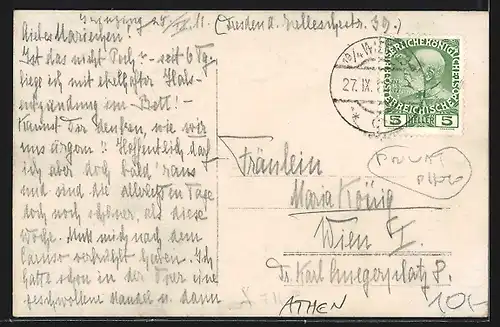 Grinzing 25/IX. 11. (Dresden A. Halleschestr. 39.)
Liebes Mariechen!
Ist das nicht Pech? – seit 6 Tg.
liege ich mit ekelhafter Hals-
entzündung im Bett! –
Kannst Dir denken, wie wir
uns ärgern! Hoffentlich darf
ich aber doch bald 'raus
und sind die allerletzten Tage
doch noch schöner, als diese
Woche. Muß mich nach dem
Caruso verkühlt haben. Ich
hatte schon in der Oper eine
geschwollene Mandel u. dann
27. IX.
5 HELLER 5
Fräulein
Maria König
Wien I.
Dr. Karl Luegerplatz 8.
PRIVAT
PHOTO
ATHEN
10,-